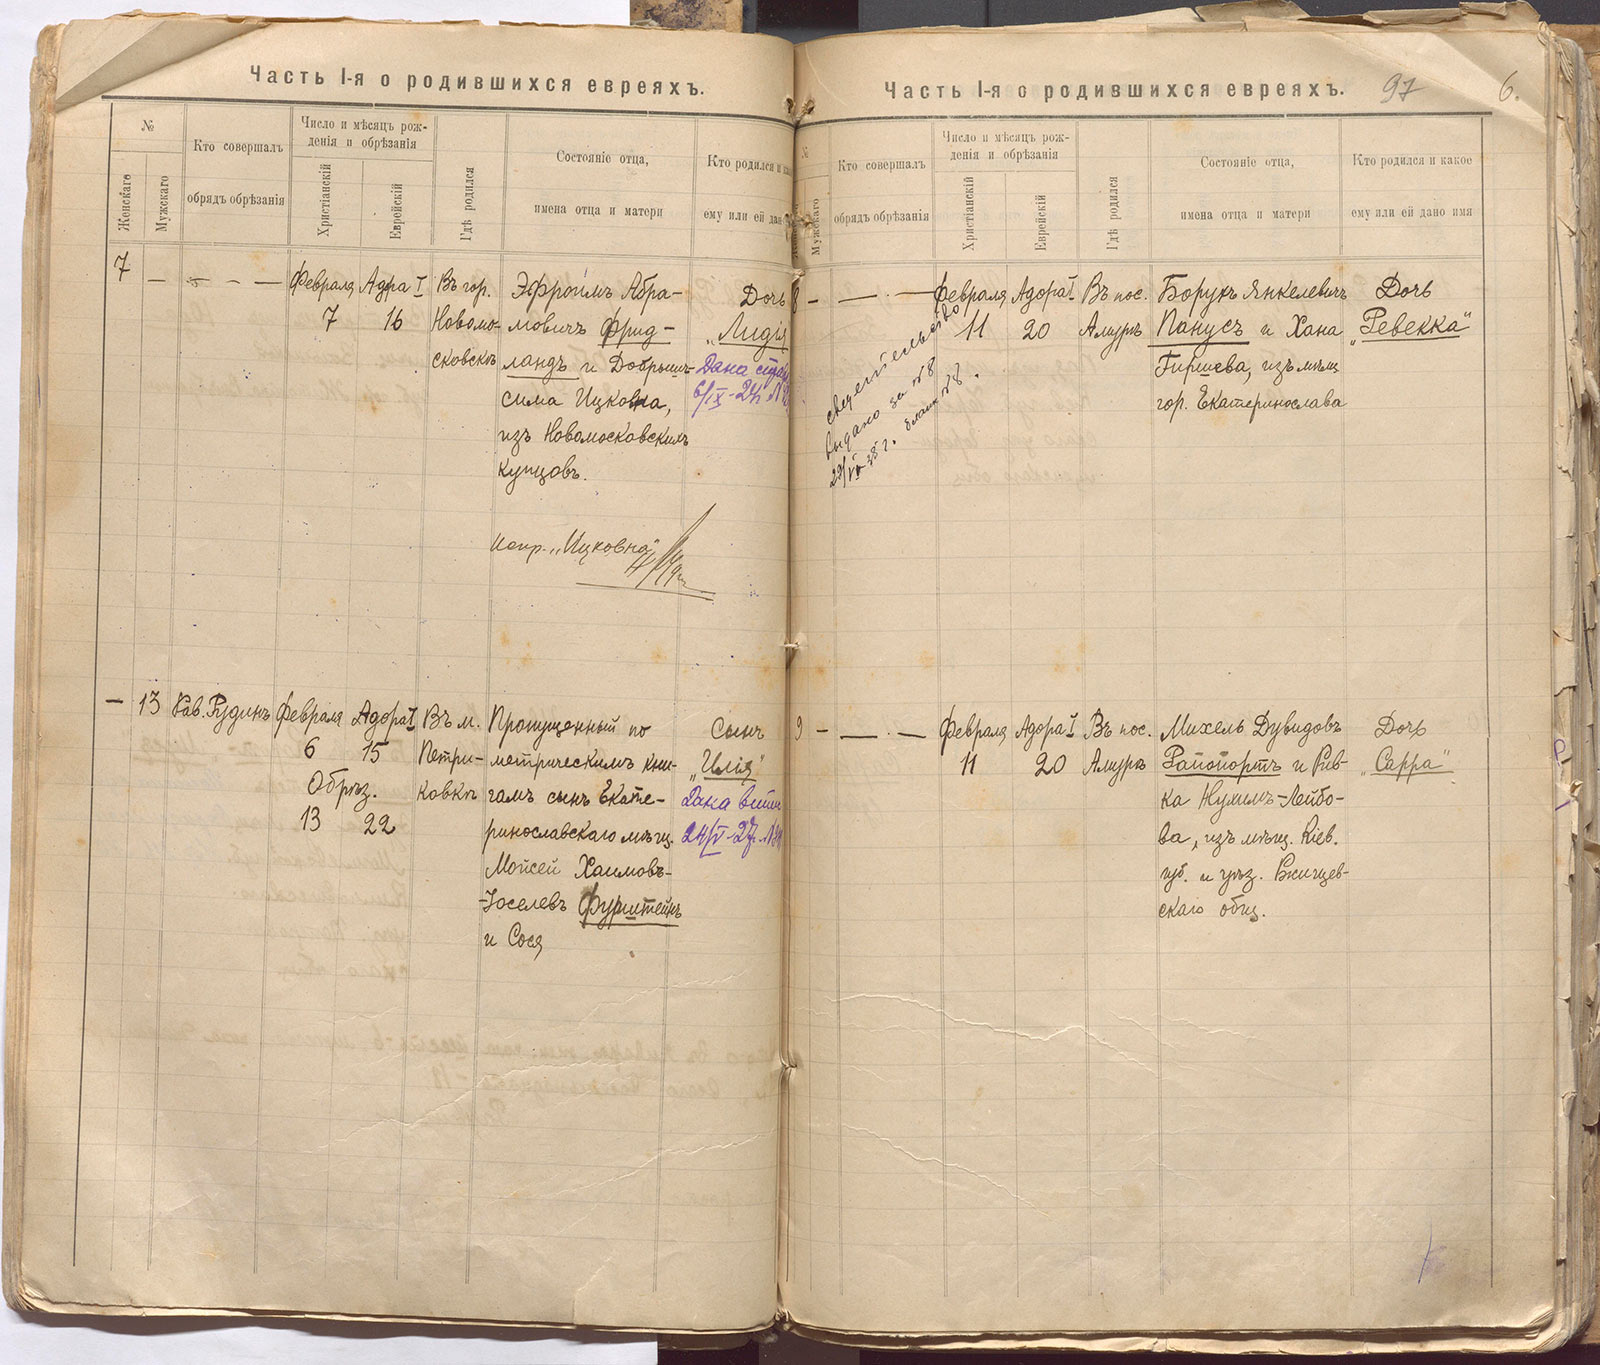 Часть I-я о родившихся евреяхъ.
№
Женскаго
Мужскаго
Кто совершалъ
обрядъ обрѣзанія
Число и мѣсяцъ рож-
денія и обрѣзанія
Христіанскій
Еврейскій
Гдѣ родился
Состояніе отца,
имена отца и матери
Кто родился и
ему или ей дано
7
— — — —
Февраля
7
Адора I
16
Въ гор.
Новомо-
сковскѣ
Эфроимъ Абра-
мовичъ Фрид-
ландъ и Добрыш-
сима Ицковна,
изъ Новомосковскихъ
купцовъ.
Испр. „Ицковна“
Дочь
„Лидія
Дана
6/IX-24
— 13
Рав. Рудинъ
Февраля
6
Обрѣз.
13
Адора I
15
22
Въ м.
Петри-
ковкѣ
Пропущенный по
метрическимъ кни-
гамъ сынъ Екате-
ринославскаго мѣщ.
Мойсей Хаимовъ-
-Іоселевъ Фурштейнъ
и Сося
Сынъ
„Илія“
Дана
24/V-27
Часть I-я о родившихся евреяхъ.
97
6.
№
Мужскаго
Кто совершалъ
обрядъ обрѣзанія
Число и мѣсяцъ рож-
денія и обрѣзанія
Христіанскій
Еврейскій
Гдѣ родился
Состояніе отца,
имена отца и матери
Кто родился и какое
ему или ей дано имя
8 — — —
свидетельство
выдано за №8
Февраля
11
Адора I
20
Въ пос.
Амурѣ
Борухъ Янкелевичъ
Панусъ и Хана
Гиршева, изъ мѣщ
гор. Екатеринослава
Дочь
„Ревекка“
9 — — —
Февраля
11
Адора I
20
Въ пос.
Амурѣ
Михель Дувидовъ
Рапопортъ и Рив-
ка Нухимъ-Лейбо-
ва, изъ мѣщ. Кіев.
губ. и уѣз. Ржищев-
скаго общ.
Дочь
„Сарра“